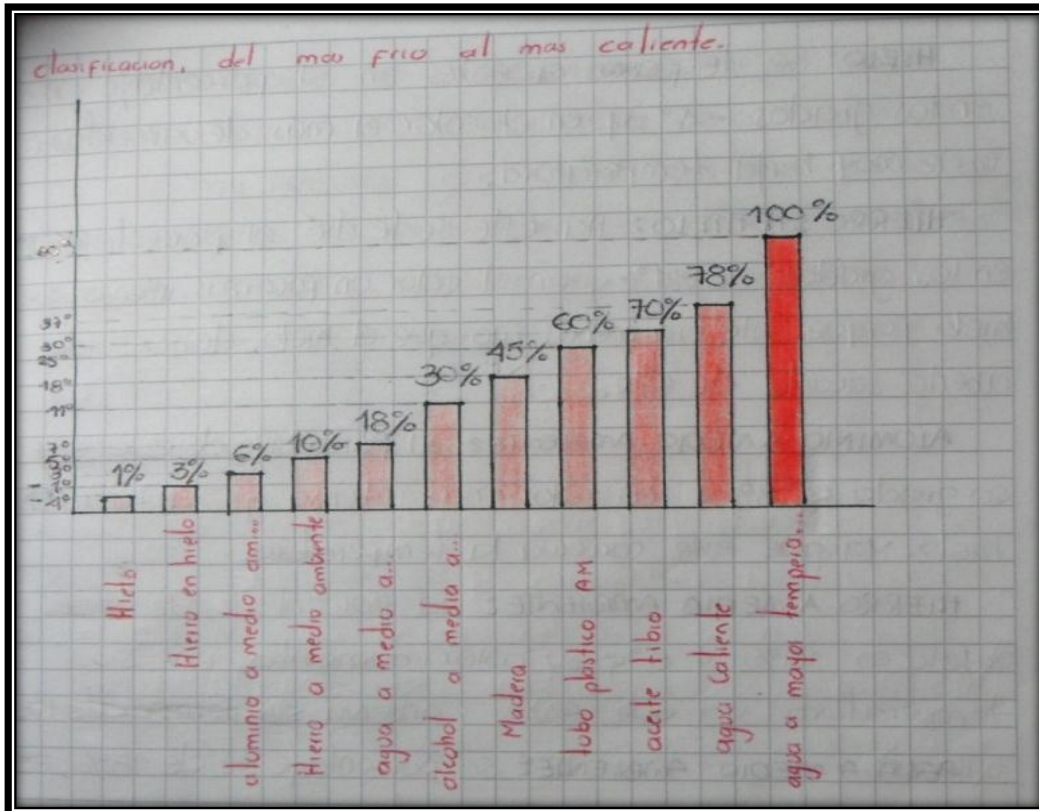 clasificacion. del mas frio al mas caliente.
100%
78%
70%
60%
45%
30%
18%
10%
6%
3%
1%
37°
30°
25°
18°
11°
Hielo
Hierro en hielo
aluminio a medio am...
Hierro a medio ambiente
agua a medio a...
alcohol a media a...
Madera
tubo plastico AM
aceite tibio
agua caliente
agua a mayor tempera...